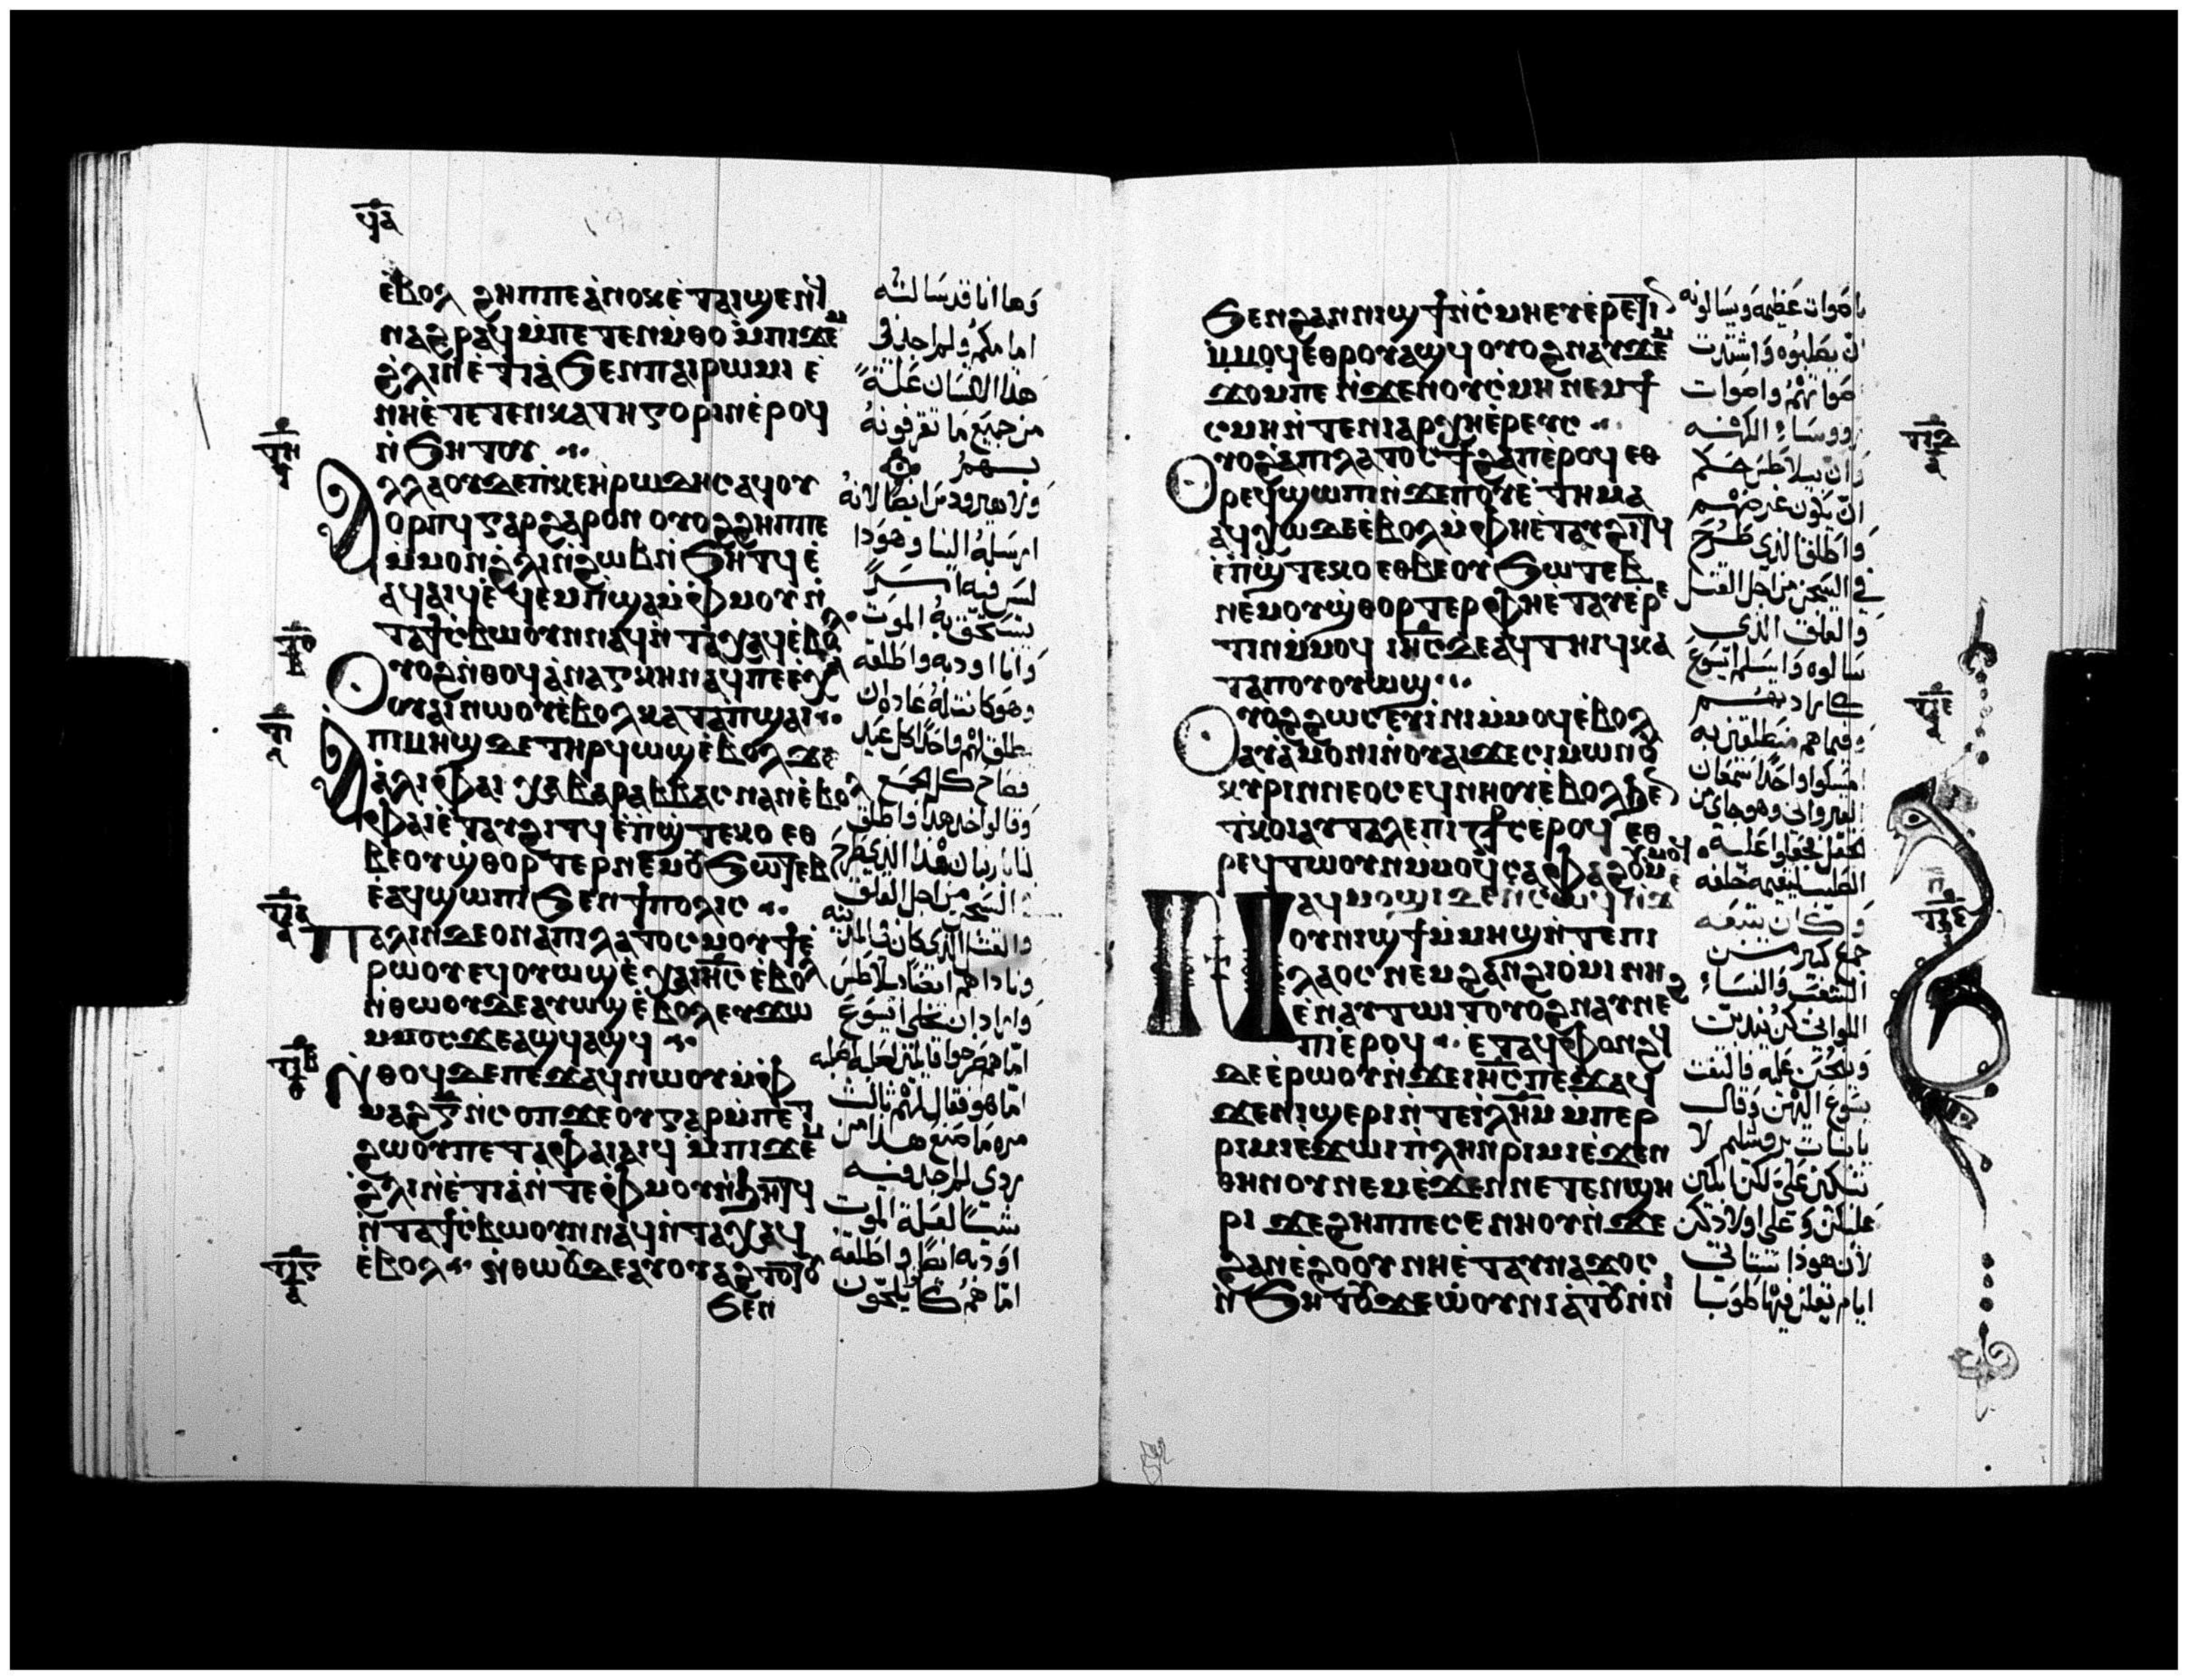 ϥⲁ
ⲉⲃⲟⲗ ϩⲏⲡⲡⲉ ⲁⲛⲟⲕ ⲉⲧⲁⲓϣⲉⲛϥ
ⲛⲁϩⲣⲁϥ ⲙⲡⲉⲧⲉⲛⲙⲑⲟ ⲙⲡⲓϫⲉⲙ
ϩⲗⲓ ⲛⲉⲧⲓⲁ ϧⲉⲛ ⲡⲁⲓⲣⲱⲙⲓ ⲉ
ⲛⲏ ⲉⲧⲉⲧⲉⲛⲕⲁⲧⲏⲅⲟⲣⲓⲛ ⲉⲣⲟϥ
ⲛϧⲏⲧⲟⲩ
ⲁⲗⲗⲁ ⲟⲩⲇⲉ ⲡⲕⲉⲏⲣⲱⲇⲏⲥ ⲁϥⲟⲩ
ⲟⲣⲡϥ ⲅⲁⲣ ϩⲁⲣⲟⲛ ⲟⲩⲟϩ ϩⲏⲡⲡⲉ
ⲙⲙⲟⲛ ϩⲗⲓ ⲛϩⲱⲃ ⲛϧⲏⲧϥ ⲉ
ⲁϥⲁⲓϥ ⲉϥⲉⲙⲡϣⲁ ⲙⲫⲙⲟⲩ ⲛ
ⲧⲁϯⲥⲃⲱ ⲟⲩⲛ ⲛⲁϥ ⲛⲧⲁⲭⲁϥ ⲉⲃⲟⲗ
ⲟⲩⲟϩ ⲛⲑⲟϥ ⲁⲛⲁⲅⲕⲏ ⲛⲁϥⲡⲉ ⲉⲭⲁ
ⲟⲩⲁⲓ ⲛⲱⲟⲩ ⲉⲃⲟⲗ ⲕⲁⲧⲁ ⲡϣⲁⲓ
ⲁ ⲡⲓⲙⲏϣ ⲇⲉ ⲧⲏⲣϥ ⲱϣ ⲉⲃⲟⲗ ϫⲉ
ⲁⲗⲓ ⲫⲁⲓ ⲭⲁ ⲃⲁⲣⲁⲃⲃⲁⲥ ⲛⲁⲛ ⲉⲃⲟⲗ
ⲫⲁⲓ ⲉⲧⲁⲩϩⲓⲧϥ ⲉⲡϣⲧⲉⲕⲟ ⲉⲑ
ⲃⲉ ⲟⲩϣⲑⲟⲣⲧⲉⲣ ⲛⲉⲙ ⲟⲩϧⲱⲧⲉⲃ
ⲉⲁϥϣⲱⲡⲓ ϧⲉⲛ ϯⲡⲟⲗⲓⲥ
ⲡⲁⲗⲓⲛ ⲇⲉ ⲟⲛ ⲁ ⲡⲓⲗⲁⲧⲟⲥ ⲙⲟⲩϯ ⲉ
ⲣⲱⲟⲩ ⲉϥⲟⲩⲱϣ ⲉⲭⲁ ⲓⲏⲥ ⲉⲃⲟⲗ
ⲛⲑⲱⲟⲩ ⲇⲉ ⲁⲩⲱϣ ⲉⲃⲟⲗ ⲉⲩϫⲱ
ⲙⲙⲟⲥ ϫⲉ ⲁϣϥ ⲁϣϥ
ⲛⲑⲟϥ ⲇⲉ ⲡⲉϫⲁϥ ⲛⲱⲟⲩ ⲙⲫ
ⲙⲁϩⲅ ⲛⲥⲟⲡ ϫⲉ ⲟⲩ ⲅⲁⲣ ⲙⲡⲉⲧ
ϩⲱⲟⲩ ⲡⲉⲧⲁ ⲫⲁⲓ ⲁⲓϥ ⲙⲡⲓϫⲉⲙ
ϩⲗⲓ ⲛⲉⲧⲓⲁ ⲛⲧⲉ ⲫⲙⲟⲩ ⲛϧⲏⲧϥ
ⲛⲧⲁϯⲥⲃⲱ ⲟⲩⲛ ⲛⲁϥ ⲛⲧⲁⲭⲁϥ
ⲉⲃⲟⲗ ⲛⲑⲱⲟⲩ ⲇⲉ ⲁⲩⲟⲩⲁϩⲧⲟⲧⲟⲩ
ϧⲉⲛ
وها انا قد سالته
امامكم ولم اجد في
هذا الانسان علة
من جميع ما تقرفونه
به
ولا هيرودس ايضا لانه
ارسله الينا وهوذا
ليس فيه
يستحق به الموت
وانا اودبه واطلقه
وهو كانت له عادة ان
يطلق لهم واحدا كل عيد
فصاح كل الجمع
وقالوا خذ هذا واطلق
لنا باربان هذا الذي طرح
السجن من اجل القلق
والقتل الذي كان في المدينة
وناداهم ايضا بيلاطس
واراد ان يخلي ايسوع
اما هم صرخوا قايلين اصلبه اصلبه
اما هو فقال لهم ثالث
مرة ما صنع هذا من
ردي لم اجد فيه
شيا لعلة الموت
اودبه ايضا واطلقه
اما هم كانوا يلحون
ϧⲉⲛ ϩⲁⲛⲛⲓϣϯ ⲛⲥⲙⲏ ⲉⲩⲉⲣⲉⲧⲓⲛ
ⲙⲙⲟϥ ⲉⲑⲣⲟⲩⲁϣϥ ⲟⲩⲟϩ ⲛⲁⲩϫⲉⲙ
ϫⲟⲙ ⲡⲉ ⲛϫⲉ ⲛⲟⲩⲥⲙⲏ ⲛⲉⲙ ϯ
ⲥⲙⲏ ⲛⲧⲉ ⲛⲓⲁⲣⲭⲏⲉⲣⲉⲩⲥ
ⲟⲩⲟϩ ⲁ ⲡⲓⲗⲁⲧⲟⲥ ϯϩⲁⲡ ⲉⲣⲟϥ ⲉⲑ
ⲣⲉϥϣⲱⲡⲓ ⲛϫⲉ ⲡⲟⲩⲉⲧⲏⲙⲁ
ⲁϥⲭⲱ ⲇⲉ ⲉⲃⲟⲗ ⲙⲫⲏ ⲉⲧⲁⲩϩⲓⲧϥ
ⲉⲡϣⲧⲉⲕⲟ ⲉⲑⲃⲉ ⲟⲩϧⲱⲧⲉⲃ
ⲛⲉⲙ ⲟⲩϣⲑⲟⲣⲧⲉⲣ ⲫⲏ ⲉⲧⲁⲩⲉⲣⲉ
ⲧⲓⲛ ⲙⲙⲟϥ ⲓⲏⲥ ⲇⲉ ⲁϥⲧⲏⲓϥ ⲕⲁ
ⲧⲁ ⲡⲟⲩⲟⲩⲱϣ
ⲟⲩⲟϩ ϩⲱⲥ ⲉⲩⲓⲛⲓ ⲙⲙⲟϥ ⲉⲃⲟⲗ
ⲁⲩⲁⲙⲟⲛⲓ ⲛⲟⲩⲁⲓ ϫⲉ ⲥⲓⲙⲱⲛ ⲟⲩ
ⲕⲩⲣⲓⲛⲛⲉⲟⲥ ⲉϥⲛⲏⲟⲩ ⲉⲃⲟⲗ ϧⲉⲛ
ⲧⲕⲟⲓ ⲁⲩⲧⲁⲗⲉ ⲡⲓⲥⲧⲁⲩⲣⲟⲥ ⲉⲣⲟϥ ⲉⲑ
ⲣⲉϥⲧⲱⲟⲩⲛ ⲙⲙⲟϥ ⲥⲁⲫⲁϩⲟⲩ
ⲛⲁϥⲙⲟϣⲓ ⲇⲉ ⲛⲥⲱϥ ⲛϫⲉ
ⲟⲩⲛⲓϣϯ ⲙⲙⲏϣ ⲛⲧⲉ ⲡⲓ
ⲗⲁⲟⲥ ⲛⲉⲙ ϩⲁⲛϩⲓⲟⲙⲓ ⲛⲏ
ⲉⲛⲁⲩⲧⲱⲓⲧ ⲟⲩⲟϩ ⲛⲁⲩⲛⲉϩ
ⲡⲓ ⲉⲣⲟϥ ⲉⲧⲁϥⲫⲟⲛϩϥ
ⲇⲉ ⲉⲣⲱⲟⲩ ⲛϫⲉ ⲓⲏⲥ ⲡⲉϫⲁϥ
ϫⲉ ⲛⲓϣⲉⲣⲓ ⲛⲧⲉ ⲓⲗⲏⲙ ⲙⲡⲉⲣ
ⲣⲓⲙⲓ ⲉϫⲱⲓ ⲡⲗⲏⲛ ⲣⲓⲙⲓ ⲉϫⲉⲛ
ⲑⲏⲛⲟⲩ ⲛⲉⲙ ⲉϫⲉⲛ ⲛⲉⲧⲉⲛϣⲏ
ⲣⲓ ϫⲉ ϩⲏⲡⲡⲉ ⲥⲉⲛⲏⲟⲩ ⲛϫⲉ
ϩⲁⲛⲉϩⲟⲟⲩ ⲛⲏ ⲉⲧⲁⲩⲛⲁϫⲟⲥ
ⲛϧⲏⲧⲟⲩ ϫⲉ ⲱⲟⲩⲛⲓⲁⲧⲟⲩ ⲛⲛⲓ
باصوات عظيمة ويسالونه
ان يصلبوه واشتدت
اصواتهم واصوات
روساء الكهنة
وان بيلاطس حكم
ان يكون غرضهم
واطلق الذي طرح
في السجن من اجل القتل
والقلق الذي
سالوه واسلم ايسوع
كارادتهم
وفيما هم منطلقين به
امسكوا واحدا سمعان
القيرواني وهو جاي من
الحقل فجعلوا عليه
الصليب ليقيمه خلفه
وكان يتبعه
جمع كبير من
الشعب والنساء
اللواتي كن يندبن
وينحن عليه فالتفت
يسوع اليهن وقال
يا بنات يروشليم لا
تبكين علي لكن ابكين
عليكن وعلى اولادكن
لان هوذا ستاتي
ايام تقلن فيها طوبا